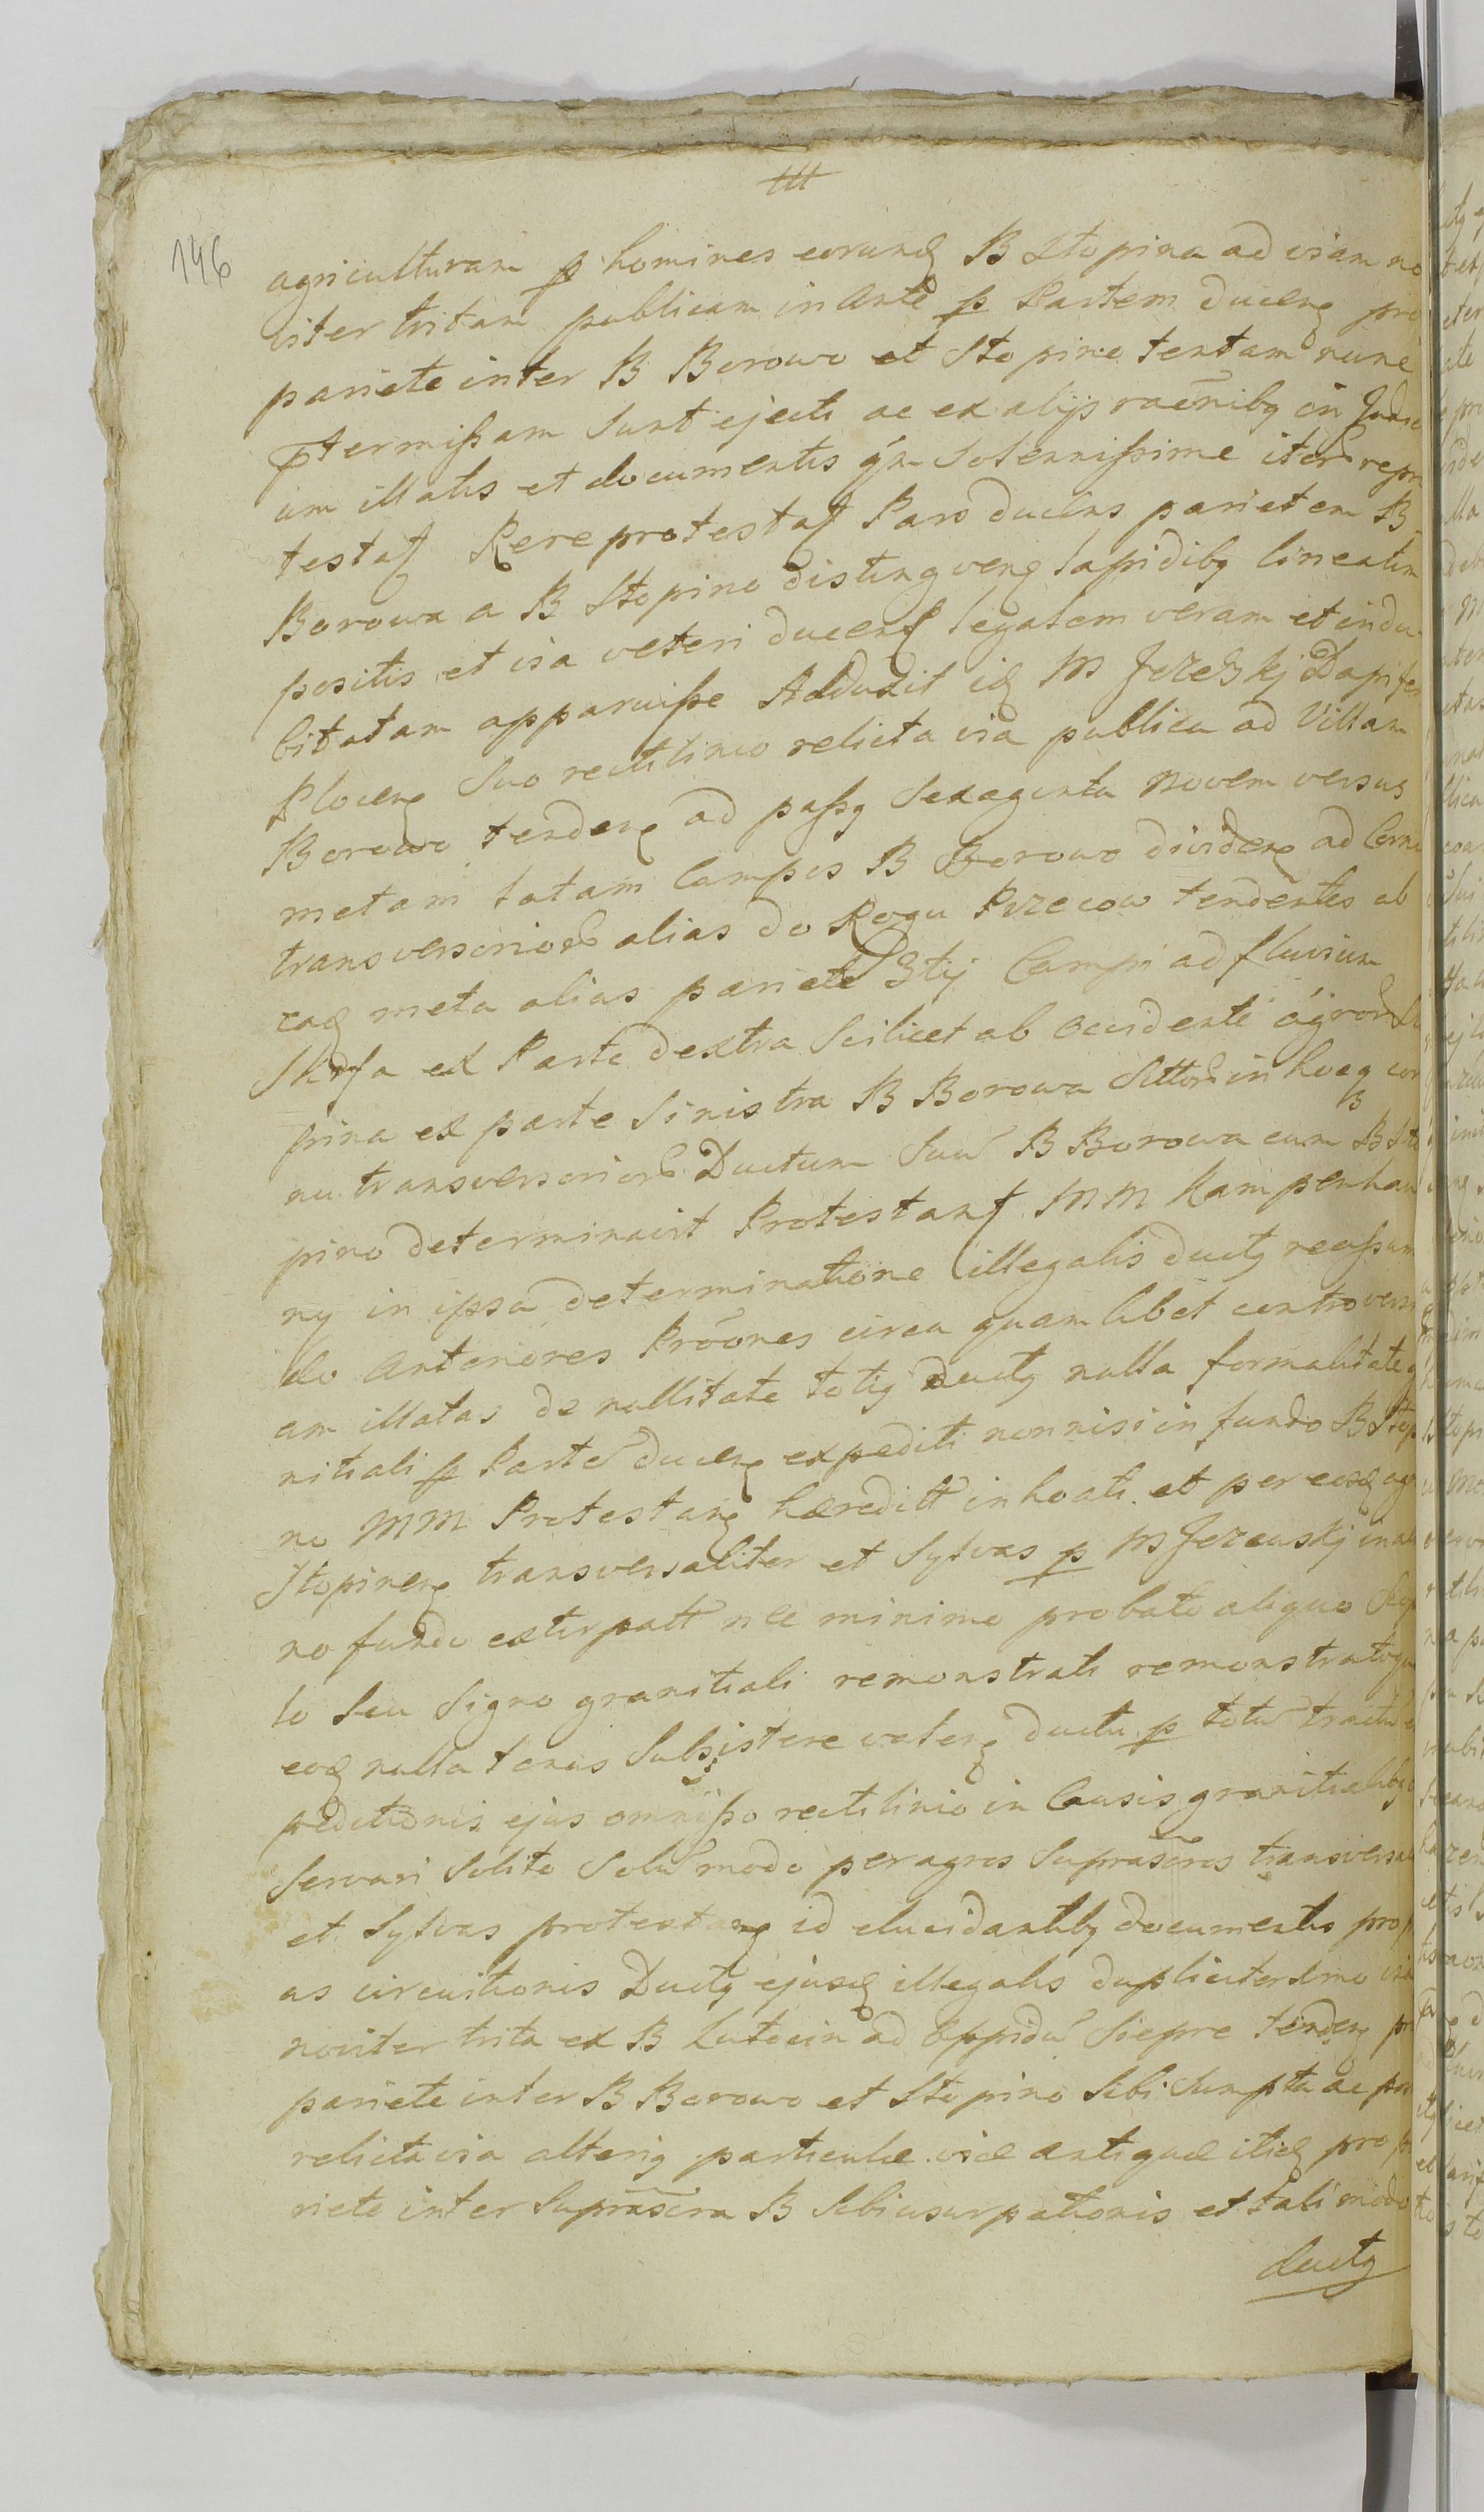 146
agriculturam p homines eorund B Stopina ad viam no
viter tritam publicam in Ante p Partem ducen pro
pariete inter B Borowo et Stopino tentam nunc
ptermissam sunt ejecti ac ex alijs raonibq in Judici
um illatis et documentis gn solennissime iter repro
testat Rereprotestat Pars ducens parietem B
Borowa a B Stopino distingven lapidibq lineatim
positis et via veteri ducen legalem veram et indu
bitatam apparuisse Adduxit id M Jezewski Dapifer
Plocen suo rectilinio relicta via publica ad Villam
Borowo tenden ad passq sexaginta novem versus
metam totam Campos B Borowo dividen ad Cornu
transversorior alias do Rogu Przecow tendentes ab
ead meta alias pariete 3tij Campi ad fluvium
Skrfa ex Parte dextra scilicet ab occidente agror Sto
pina ex parte sinistra B Borowa sittor in hocq cor
nu transversorior Ductum suu B Borowa cum B Sto
pino determinavit Protestant MM Kampenhau
ny in ipsa determinatione illegalis ductq reassum
do anteriores Proones circa quamlibet controversi
am illatas de nullitate totiq ductq nulla formalitate gra
nitiali p Parte ducen expediti non nisi in fundo B Stopi
no MM Protestan haereditt inhoati et per eosd agros
Stopinen transversaliter et Sylvas p M Jezewskj in alie
no fundo extirpatt nec minimo probato aliquo
lo seu signo granitiali remonstrati remonstratoq
eoq nulla tenus subsistere valen ductu p totu tractu ex
peditionis ejus omisso rectilinio in Causis granitialibq
servari solito solu modo per agros suprascros transversal
et Sylvas protestan id elucidantibq documentis prop
as circuitionis Ductq ejusd illegalis dupliciter primo via
noviter trita ex B Lutocin ad oppidu Sieprc tenden pro
pariete inter B Borowo et Stopino sibi sumpta ac post
relicta via alteriq particulae viae antiquae itid pro pa
riete inter suprascra B sibi usurpationis et tali modo
ductq